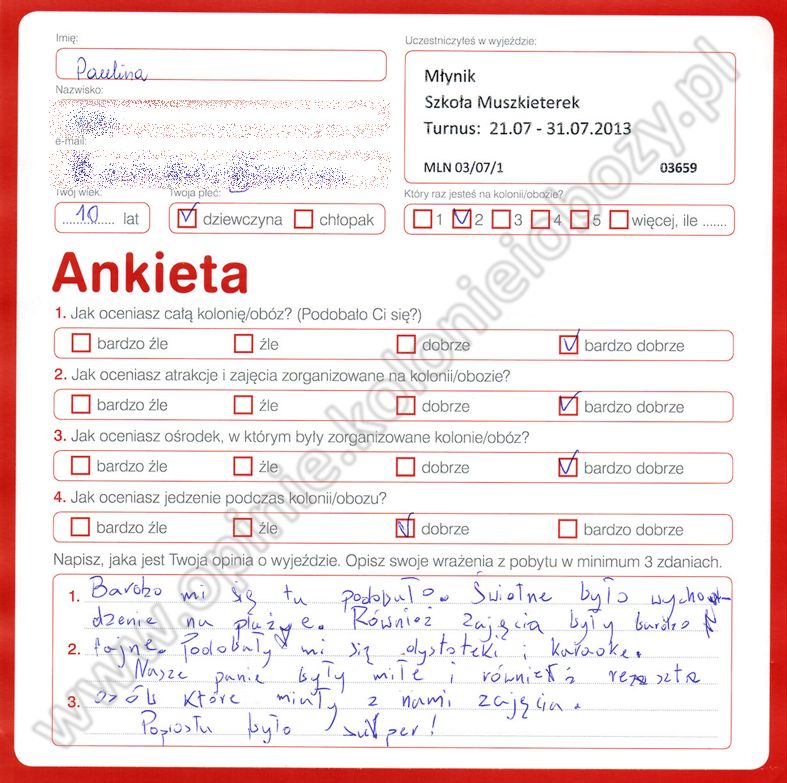 Imię:
Uczestniczyłeś w wyjeździe:
Paulina
Młynik
Szkoła Muszkieterek
Turnus: 21.07 - 31.07.2013
MLN 03/07/1 03659
Nazwisko:
e-mail:
Twój wiek: Twoja płeć: Który raz jesteś na kolonii/obozie?
10 lat dziewczyna chłopak 1 2 3 4 5 więcej, ile .......
Ankieta
1. Jak oceniasz całą kolonię/obóz? (Podobało Ci się?)
bardzo źle źle dobrze bardzo dobrze
2. Jak oceniasz atrakcje i zajęcia zorganizowane na kolonii/obozie?
bardzo źle źle dobrze bardzo dobrze
3. Jak oceniasz ośrodek, w którym były zorganizowane kolonie/obóz?
bardzo źle źle dobrze bardzo dobrze
4. Jak oceniasz jedzenie podczas kolonii/obozu?
bardzo źle źle dobrze bardzo dobrze
Napisz, jaka jest Twoja opinia o wyjeździe. Opisz swoje wrażenia z pobytu w minimum 3 zdaniach.
1. Bardzo mi się tu podobało. Świetne było wycho-
dzenie na plażę. Również zajęcia były bardzo
2. fajne. Podobały mi się dystoteki i karaoke.
Nasze panie były miłe i również reszta
3. osób które miały z nami zajęcia.
Poprostu było super!
www.opinie.kolonieiobozy.pl